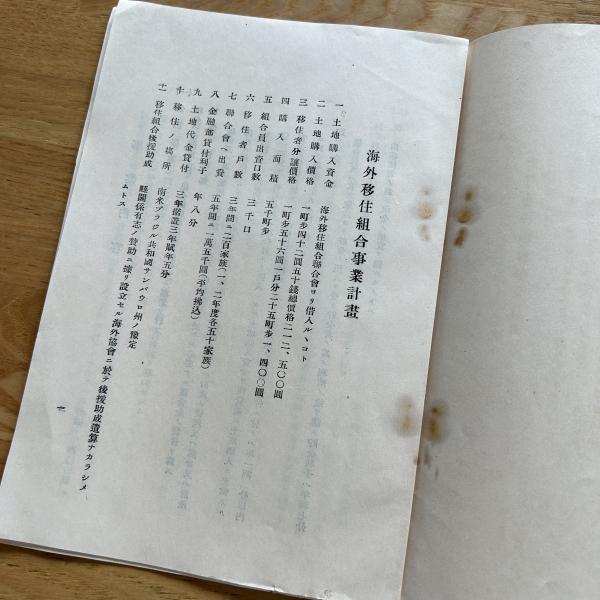 海外移住組合事業計畫
一 土地購入資金 海外移住組合聯合會ヨリ借入ルヽコト
二 土地購入價格 一町步四十二圓五十錢總價格二一二、五〇〇圓
三 移住者分讓價格 一町步五十六圓一戶分二十五町步一、四〇〇圓
四 購入面積 五千町步
五 組合員出資口數 三千口
六 移住者戶數 三年間ニ二百家族(一、二年度各五十家族)
七 聯合會ヘ出資 五年間ニ一萬五千圓(平均拂込)
八 金融部貸付利子 年八分
九 土地代金貸付 三年据置三年賦年五分
十 移住ノ場所 南米ブラジル共和國サンパウロ州ノ豫定
十一 移住組合後援助成 縣關係有志ノ贊助ニ據リ設立セル海外協會ニ於テ後援助成遺算ナカラシメ
ムトス